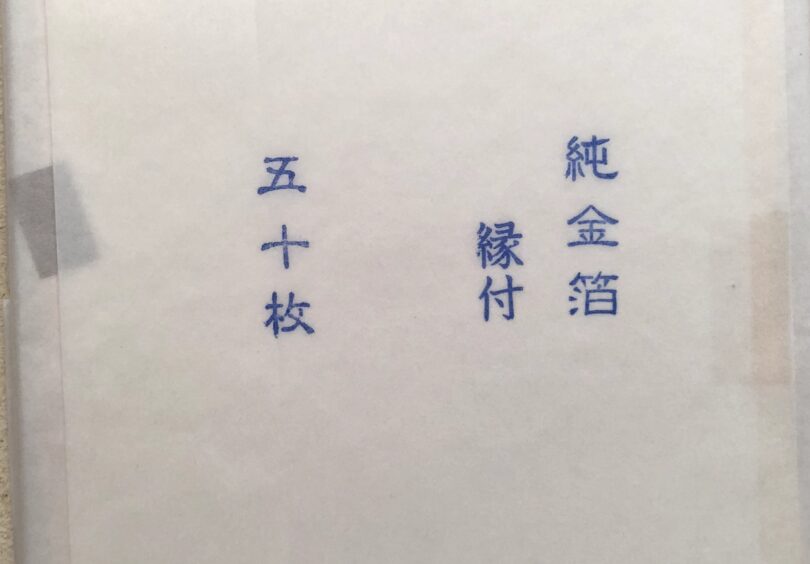 純金箔
縁付
五十枚